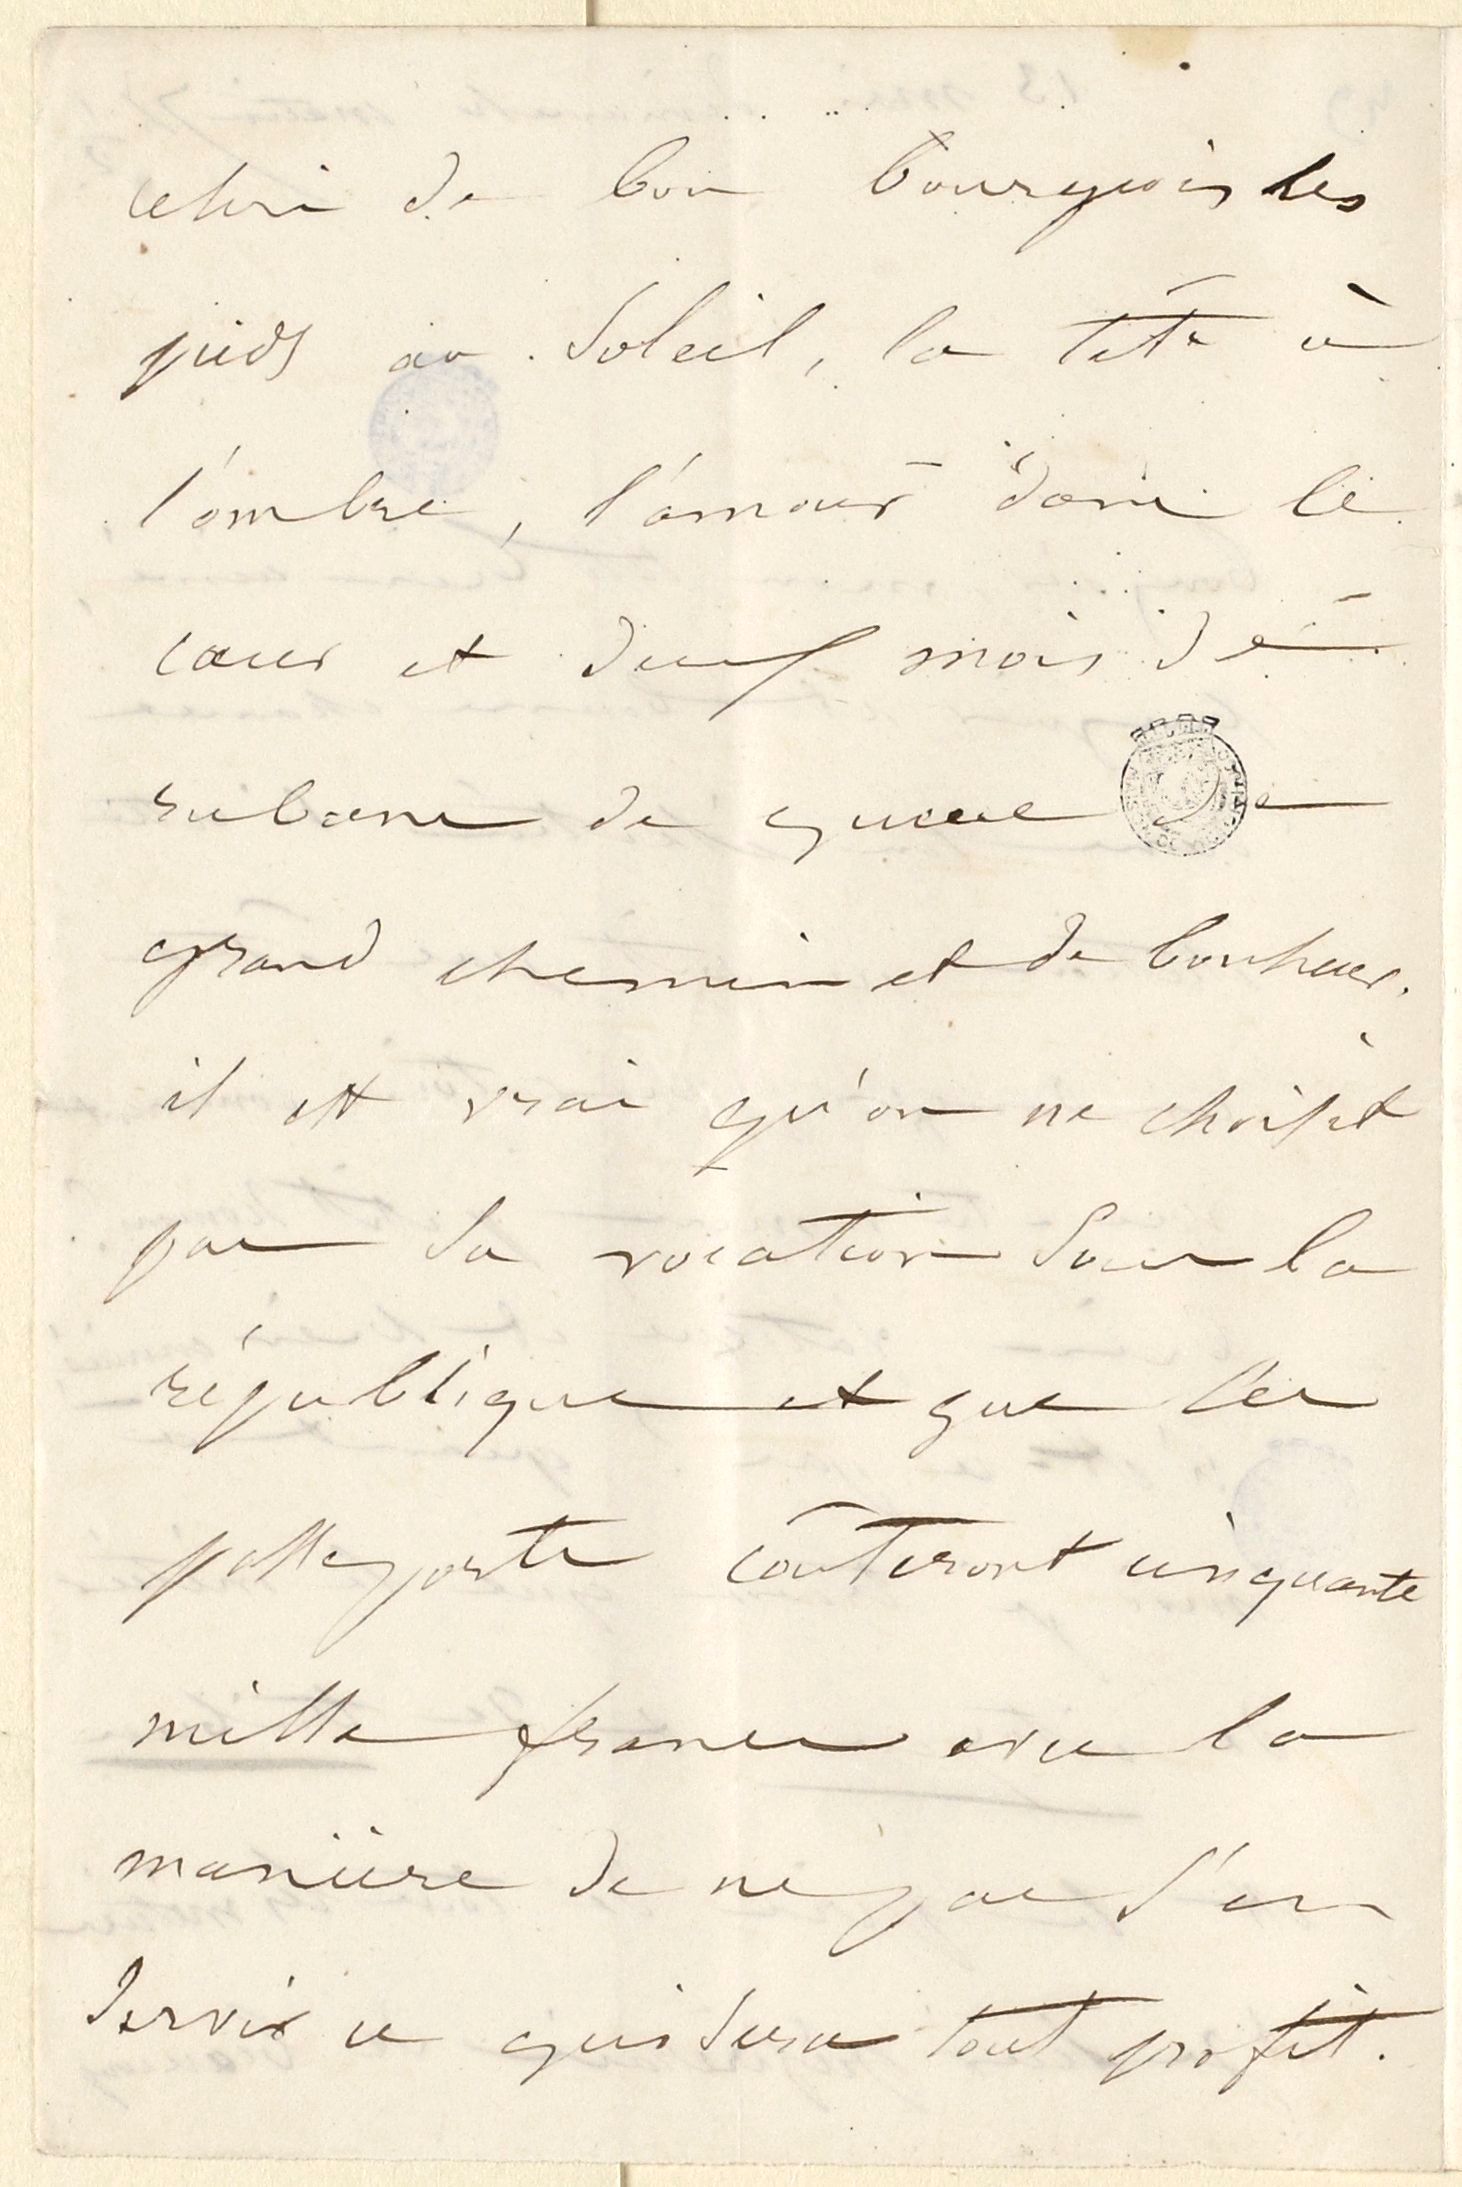 celui de bon bourgeois les
pieds au soleil, la tête à
l'ombre, l'amour dans le
cœur et deux mois de
rubans de queue de
grand chemin et de bonheur.
il est vrai qu'on ne choisit
pas sa vocation sous la
république et que les
passeports coûteront cinquante
mille francs avec la
manière de ne pas s'en
servir ce qui sera tout profit.